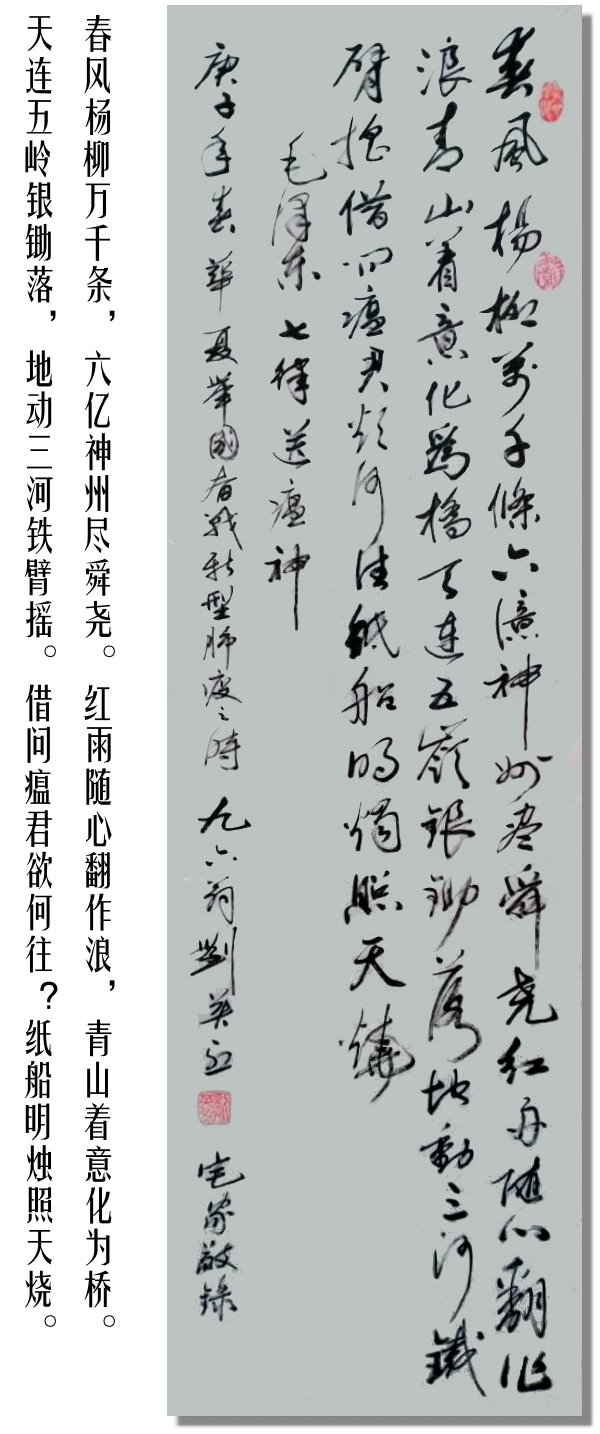 春风杨柳万千条，六亿神州尽舜尧。红雨随心翻作浪，青山着意化为桥。
天连五岭银锄落，地动三河铁臂摇。借问瘟君欲何往？纸船明烛照天烧。
春風楊柳萬千條六億神州盡舜堯紅雨随心翻作
浪青山着意化為橋天連五嶺銀鋤落地動三河鐵
臂摇借问瘟君欲何往紙船明燭照天燒
毛澤东七律送瘟神
庚子年春華夏举国奋战新型肺疫之時九六翁劉英 宅家敬錄